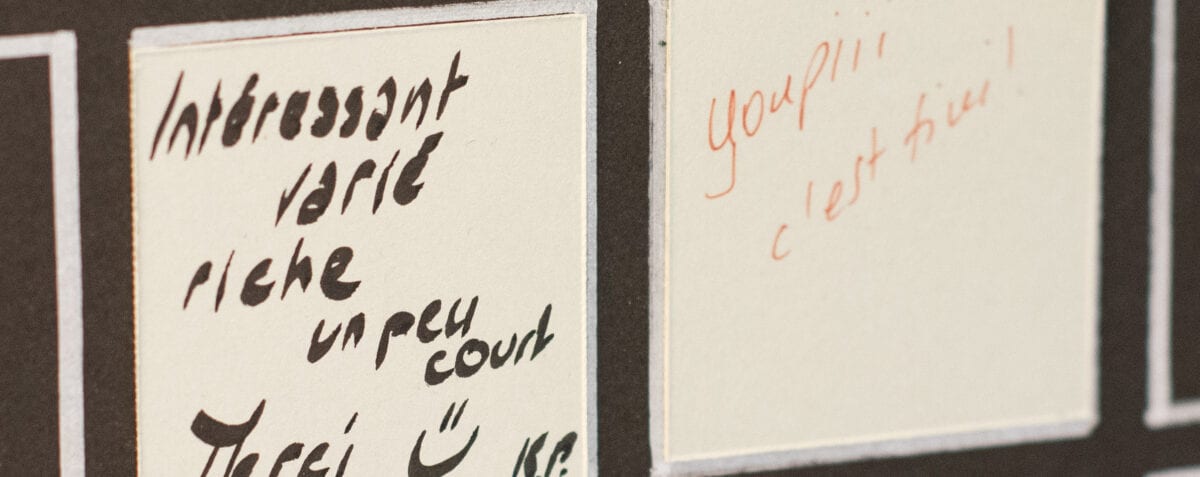 Intéressant
varié
riche
un peu
court
Merci
youpiii
c'est fini!